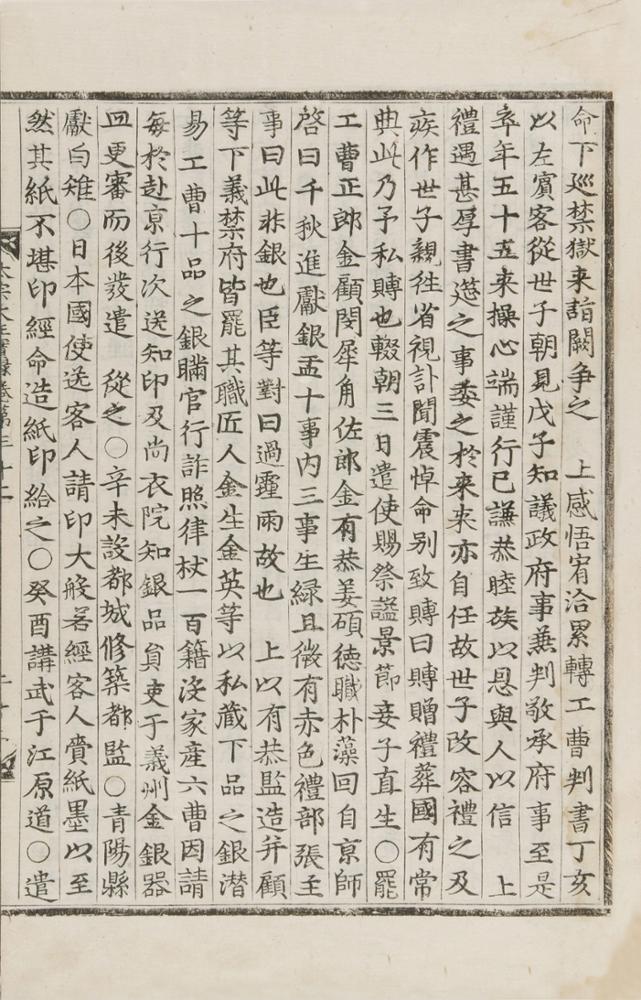 命下巡禁獄来詣闕争之　上感悟宥洽累轉工曹判書丁亥
以左賓客從世子朝見戊子知議政府事兼判敬承府事至是
卒年五十五来操心端謹行已謙恭睦族以恩與人以信　上
禮遇甚厚書筵之事委之於来来亦自任故世子改容禮之及
疾作世子親徃省視訃聞震悼命别致賻曰賻贈禮葬國有常
典此乃予私賻也輟朝三日遣使賜祭謚景節妾子直生○罷
工曹正郎金顧閔犀角佐郎金有恭姜碩德職朴藻回自京師
啓曰千秋進獻銀盂十事内三事生緑且微有赤色禮部張主
事曰此非銀也臣等對曰過霾雨故也　上以有恭監造并顧
等下義禁府皆罷其職匠人金生金英等以私藏下品之銀潜
易工曹十品之銀瞞官行詐照律杖一百籍沒家産六曹因請
每於赴京行次送知印及尚衣院知銀品員吏于義州金銀器
皿更審而後發遣　從之○辛未設都城修築都監○青陽縣
獻白雉○日本國使送客人請印大般若經客人賫紙墨以至
然其紙不堪印經命造紙印給之○癸酉講武于江原道○遣
太宗大王實録卷第三十二